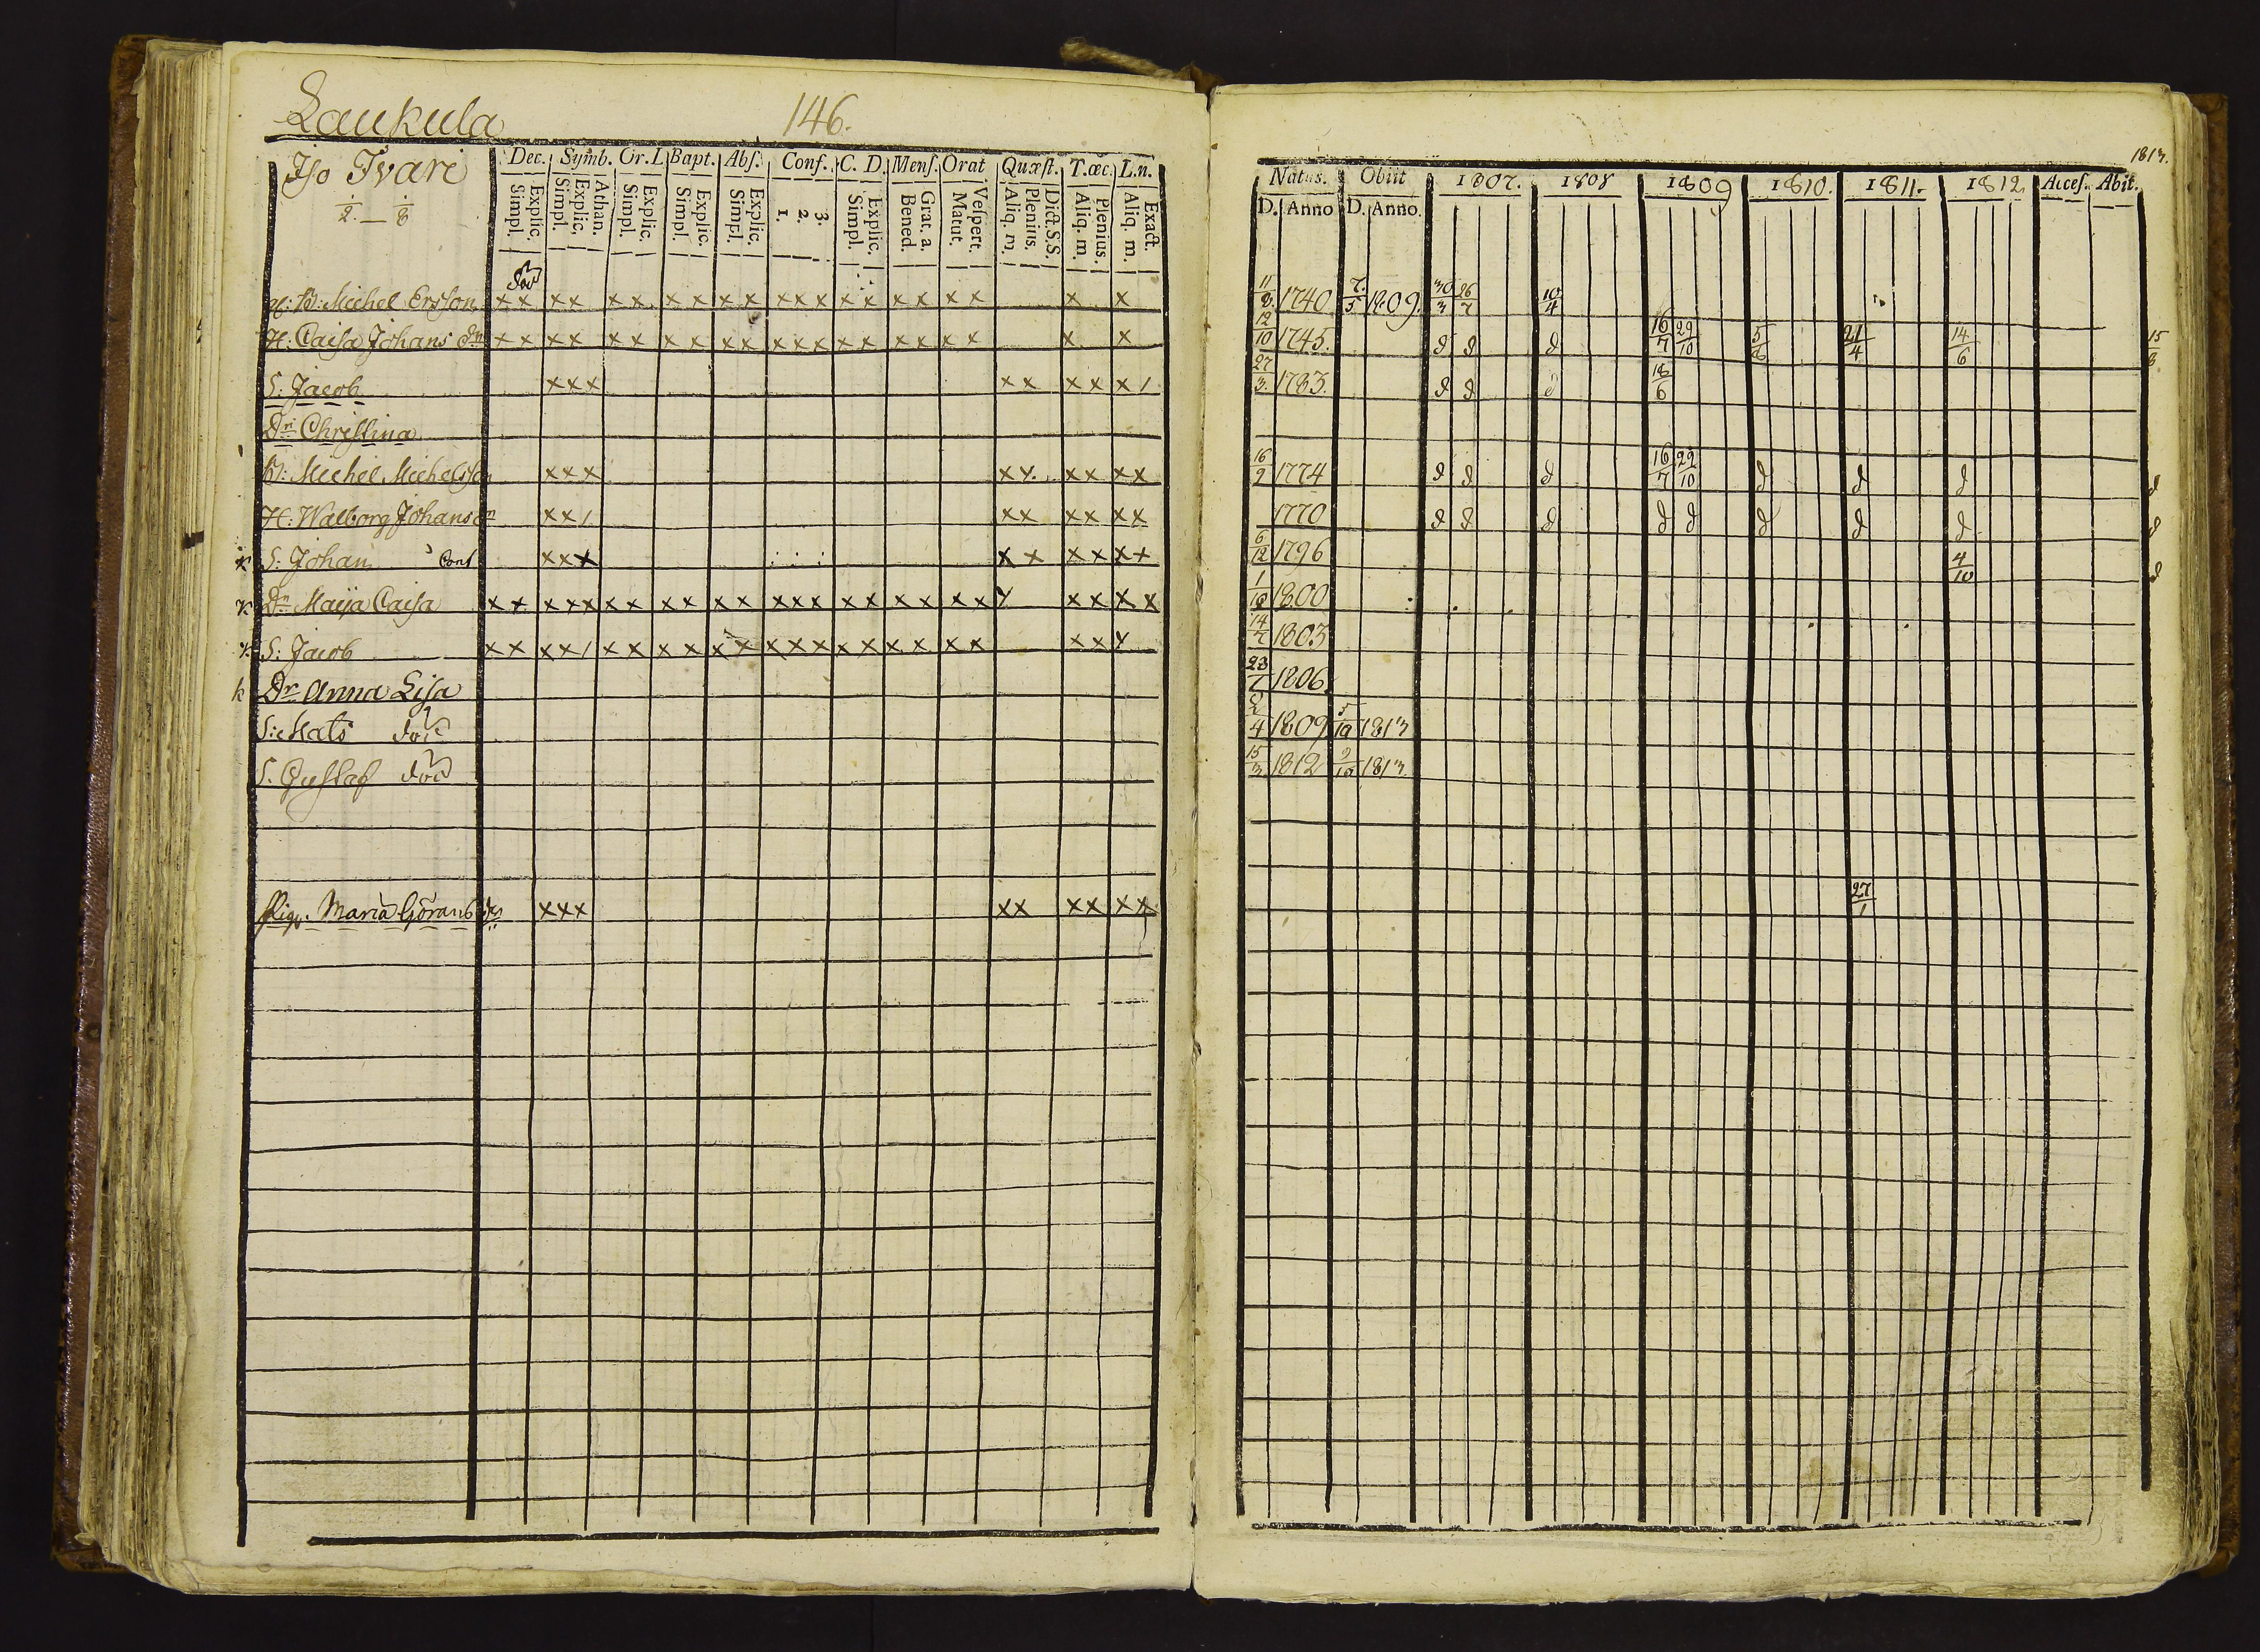 Laukula 146.
Iso Ivari
1/2 — 1/8
Dec. Symb. Or. L Bapt. Abs. Conf. C. D. Mens. Orat Quæst. T. œc. L. n.
Explic. Simpl. Athan. Explic. Simpl. Explic. Simpl. Explic. Simpl. Explic. Simpl. 3. 2. 1. Explic. Simpl. Grat. a. Bened. Vespert. Matut. Dict. S.S. Plenius. Aliq. m. Plenius. Aliq. m Exact. Aliq. m.
död
B: Michel Ersson x x x x x x x x x x x x x x x x x x x x x
H: Caisa Johans dr x x x x x x x x x x x x x x x x x x x x x
S: Jacob x x x x x x x x /
Dr Christina
B: Michel Michelsson x x x x x x x x x
H: Walborg Johans dr x x / x x x x x x
k S: Johan Conf x x x x x x x x x
k Dr Maija Caisa x x x x x x x x x x x x x x x x x x x x x x x x x x
k S: Jacob x x x x / x x x x x x x x x x x x x x x x x x
k Dr Anna Lisa
S: Mats död
S. Gustaf död
Pig. Maria Görans dr x x x x x x x x x
1813.
Natus. Obiit 1807. 1808 1809 1810. 1811. 1812 Acces. Abit.
D. Anno D. Anno.
11/8 1740 7/5 1809. 30/3 26/7 10/4
12/10 1745. d d d 16/7 29/10 5/8 21/4 14/6 15/8
27/3 1783. d d d 18/6
16/9 1774 d d d 16/7 29/10 d d d d
1770 d d d d d d d d d
6/12 1796 4/10 d
1/10 1800
14/7 1803
23/7 1806.
2/4 1809 5/10 1813
15/3 1812 9/10 1813
27/1